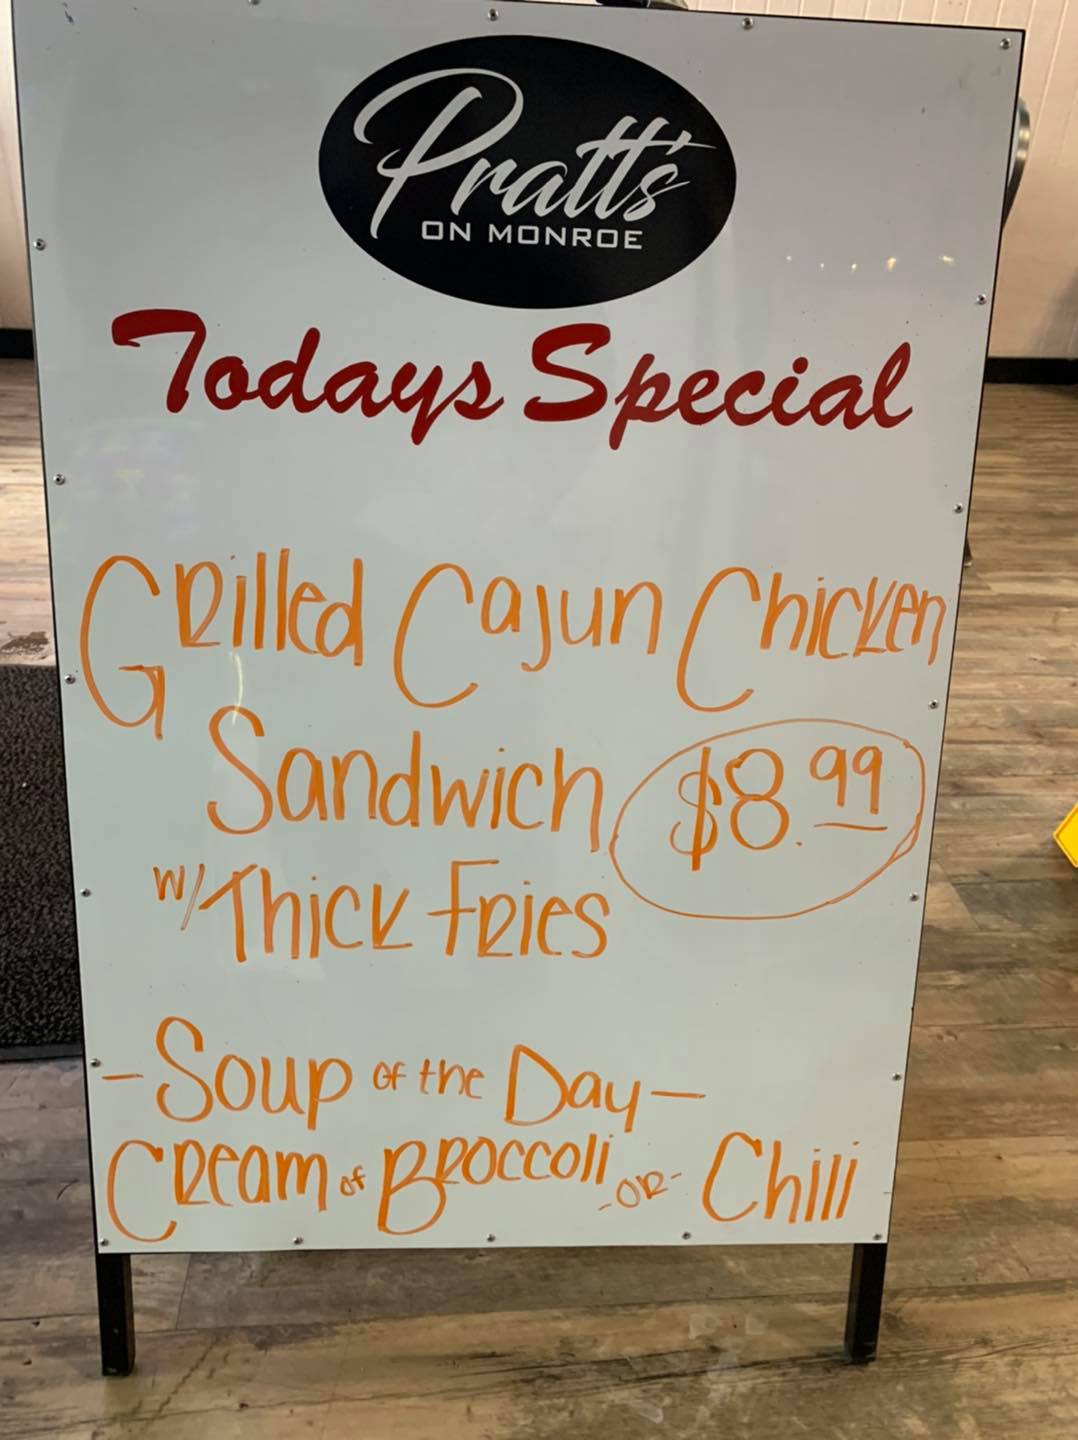 Pratt's
ON MONROE
Todays Special
Grilled Cajun Chicken
Sandwich $8.99
w/ Thick Fries
- Soup of the Day -
Cream of Broccoli -or- Chili